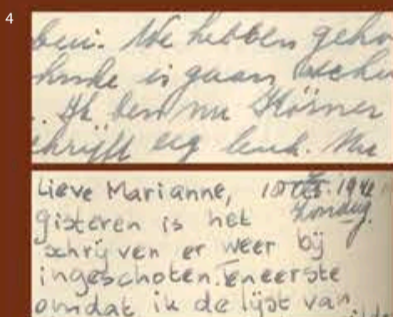 4
ben. We hebben geho
hinke is gaan
.. Ik ben nu Körner
chrijft erg leuk. Nu
Lieve Marianne, 18 Oct. 1942
zondag.
gisteren is het
schrijven er weer bij
ingeschoten. Teneerste
omdat ik de lijst van